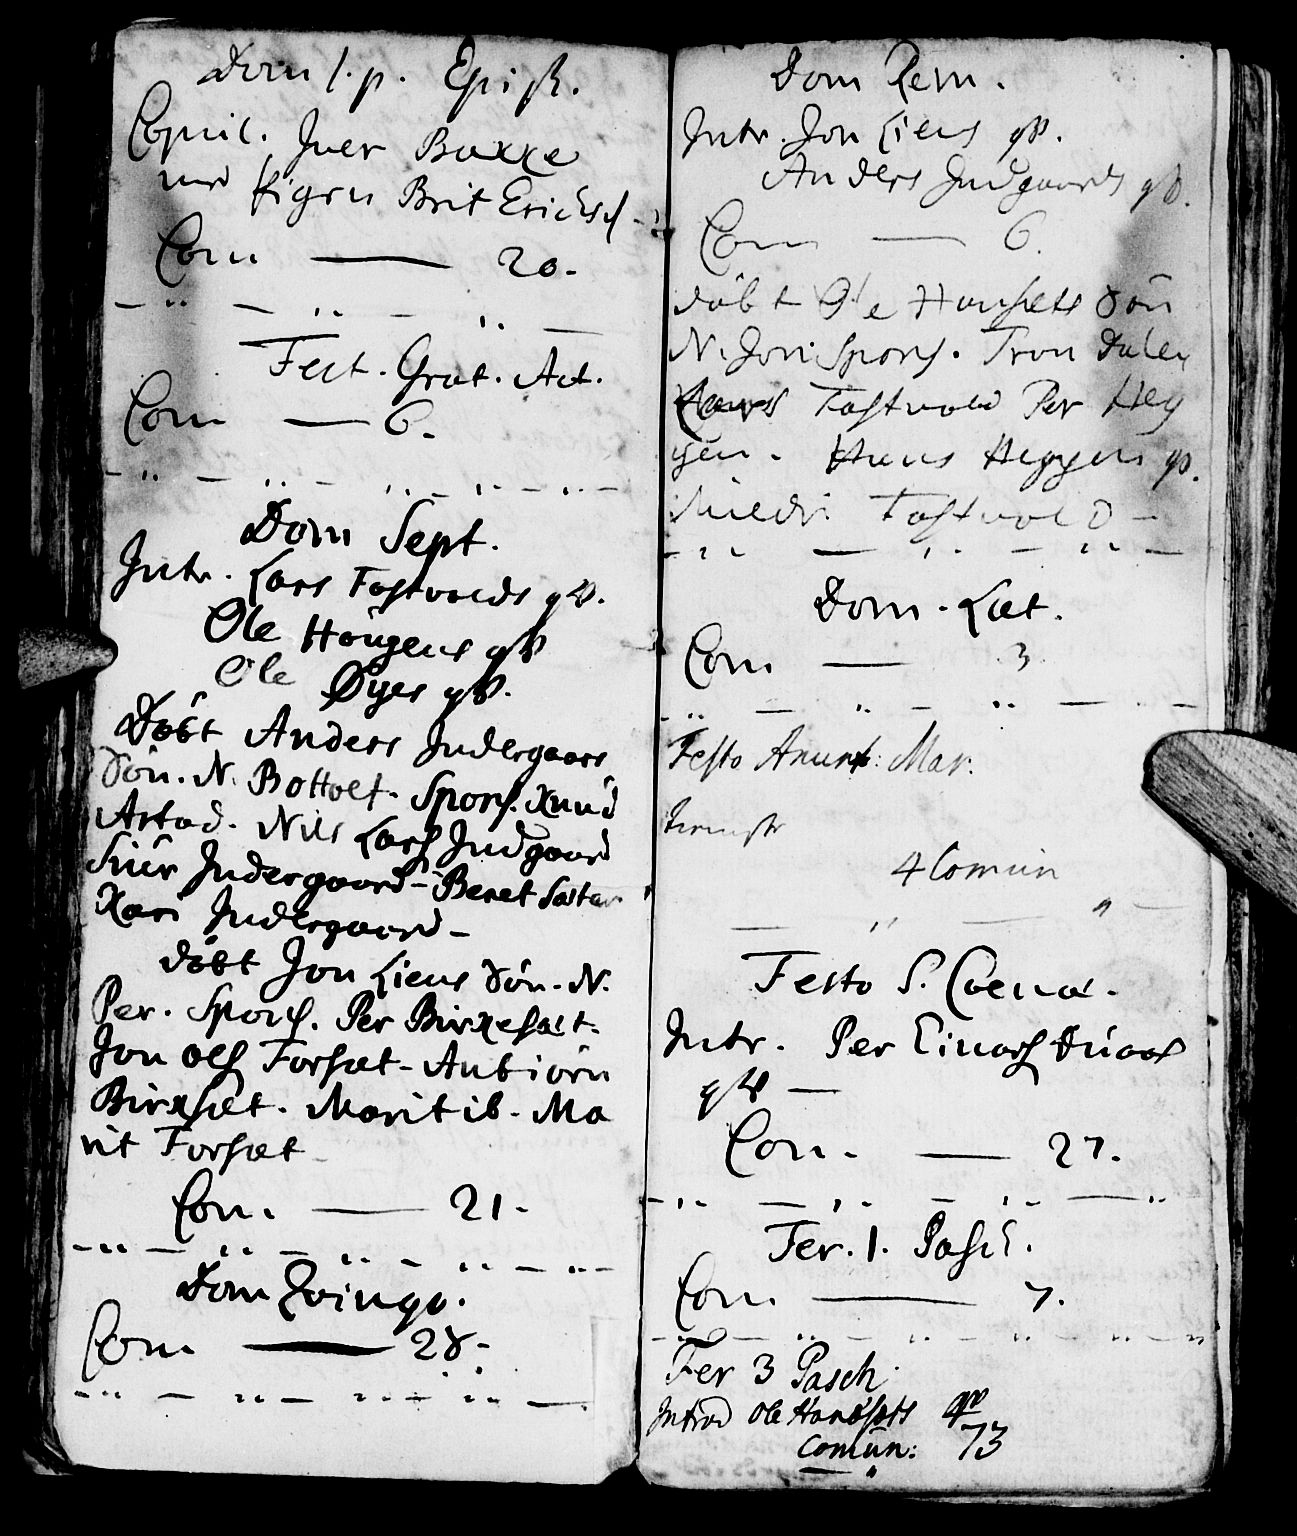 Dom 1. p. Epiph.
Copul. Juer Buxxe
med Pigen Brit Erichsd
Com — 20.
Fest. Grat. Act.
Com — 6.
Dom Sept.
Intr. Lars Fastvolds qv.
Ole Höugens qv
Ole Øyes qv.
Döbt Anders Indergaars
Sön. N. Bottolf. Spons. Knud
Astad. Nils Lars Indgaard
Siur Indergaard - Beret
Kari Indergaard -
döbt Jon Liens Sön. N.
Per. Spons. Per Birxesæt.
Jon Ols Forsæt - Anbiörn
Birxsæt. Marit ib. Ma
rit Forsæt
Com. — 21.
Dom Qvinqv.
Com — 28.
Dom Rem.
Intr. Jon Liens qv.
Anders Indgaards qv.
Com — 6.
döbt Ole Hansæts Sön
N. Jon Spons. Tron Dalen
Fastvold Per Heg
gen. Hans Heggen qv.
Fastvold -
Dom. Læt.
Com — 3
Festo Anunt: Mar.
4 Comun
Festo S. Coenæ.
Intr. Per Einars
qv —
Com. — 27.
Fer. 1. Pasch.
Com — 7.
Fer 3 Pasch.
Introd Ole Hansæts qv
Comun: 73